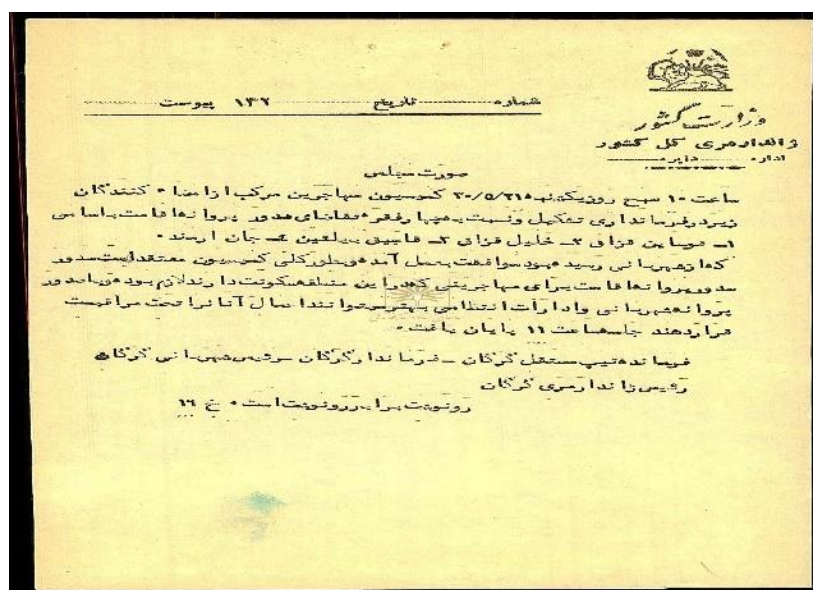 وزارت کشور
ژاندارمری کل کشور
اداره دایره
شماره تاریخ ۱۳۲ پیوست
صورت مجلس
ساعت ۱۰ صبح روز یکشنبه ۳۰/۵/۲۱ کمیسیون مهاجرین مرکب از امضاء کنندگان
زیر در فرمانداری تشکیل و نسبت به چهار فقره تقاضای صدور پروانه اقامت باسامی
۱ـ قزاق ۲ـ خلیل قزاق ۳ـ ۴ـ جان
که از شهربانی رسیده بود موافقت بعمل آمده و بطور کلی کمیسیون معتقد است صدور
صدور پروانه اقامت برای مهاجرینی که در این منطقه سکونت دارند لازم بوده و با صدور
پروانه شهربانی و ادارات انتظامی بهتر میتوانند اعمال آنانرا تحت مراقبت
قرار دهند جلسه ساعت ۱۱ پایان یافت ۰
فرمانده تیپ مستقل گرگان ـ فرماندار گرگان ـ رئیس شهربانی گرگان
رئیس ژاندارمری گرگان
رونوشت برابر رونوشت است ۰ خ ۱۶